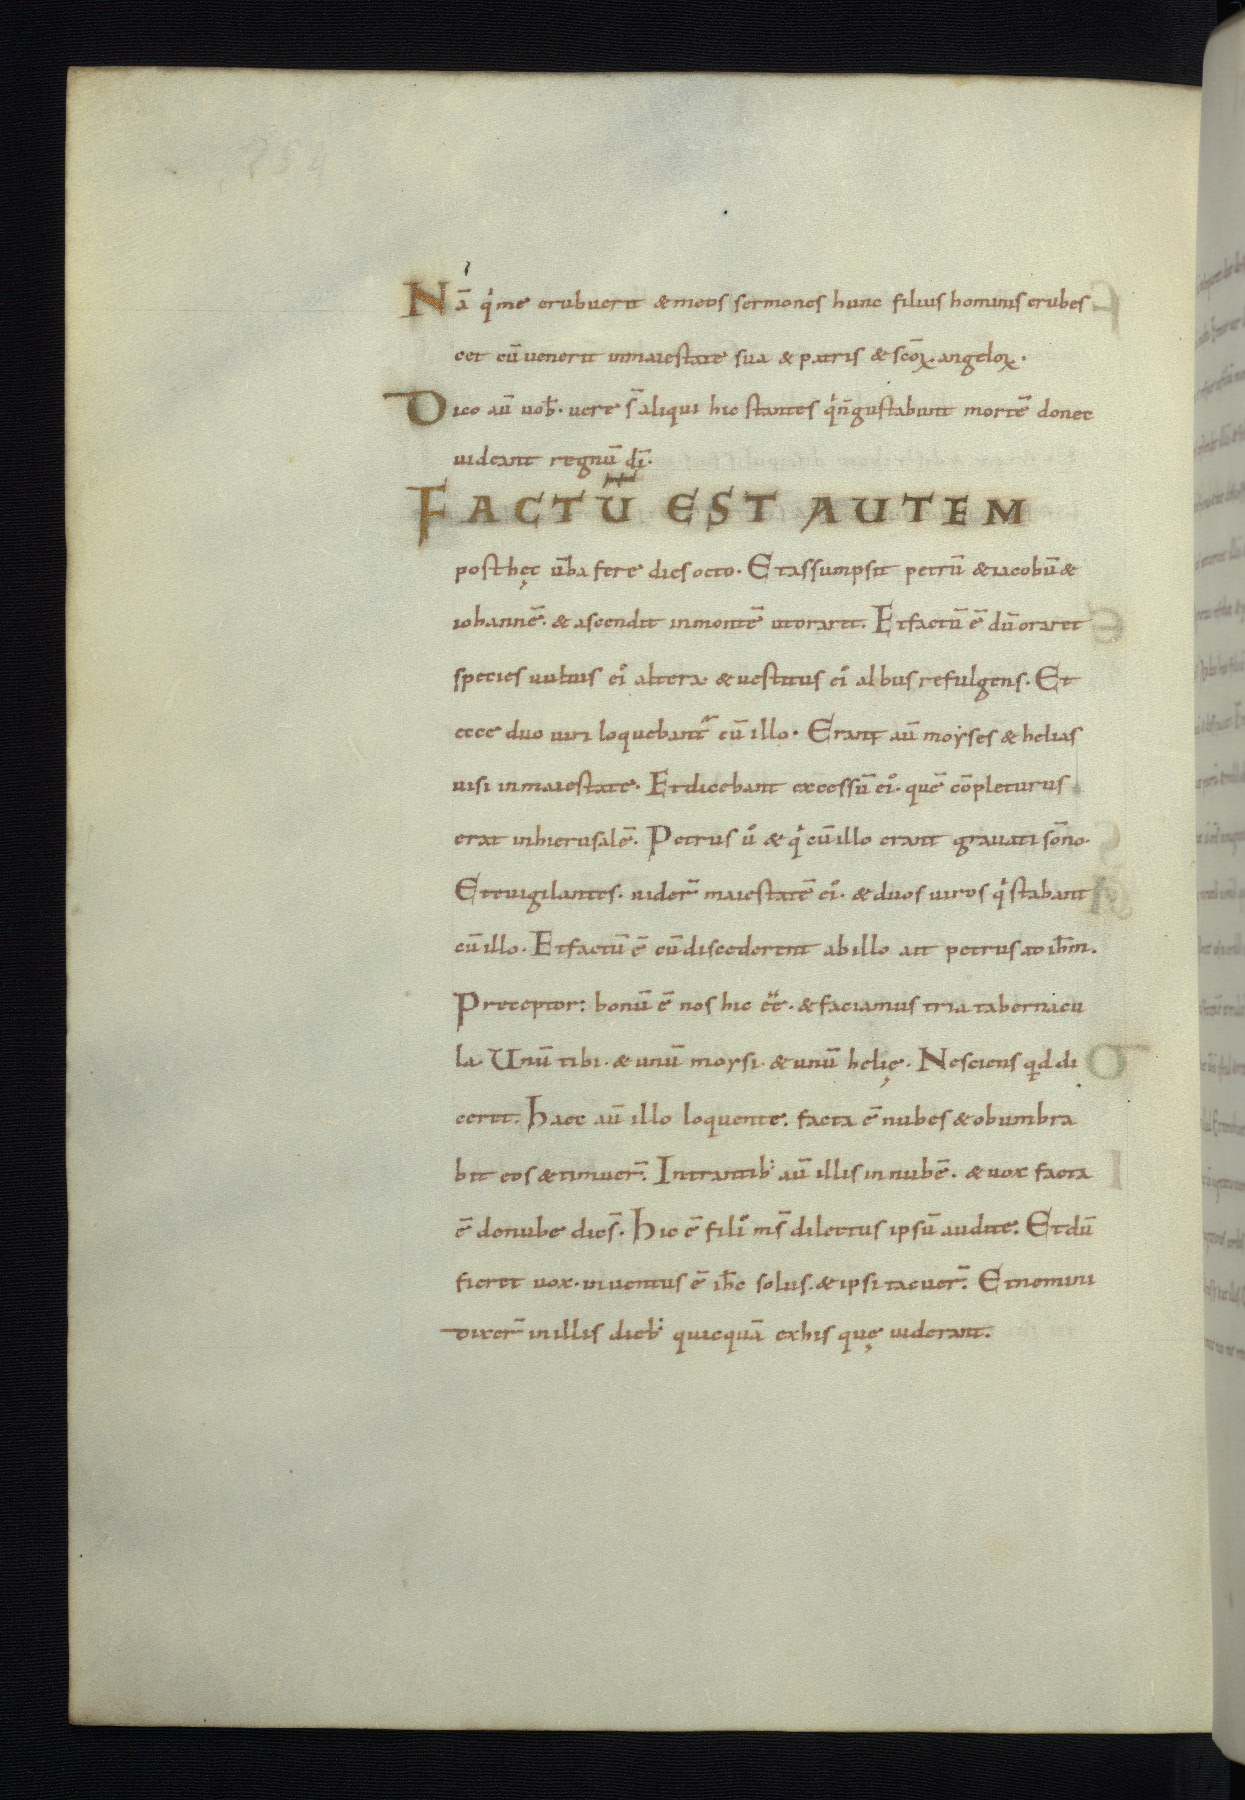 Nā qͥ me erubuerit & meos sermones hunc filius hominis erubes
cet cū uenerit inmaiestate sua & patris & scōꝝ. angeloꝝ.
Dico aū uob̄. uere s̄ aliqui hic stantes qͥ n̄ gustabunt mortē donec
uideant regnū dī.
FACTŪ EST AUTEM
posthęc ūba fere dies octo. Et assumpsit petrū & iacobū &
iohannē. & ascendit inmontē utoraret. Et factū ē dū oraret
species uultus ei᾽ altera & uestitus ei᾽ albus refulgens. Et
ecce duo uiri loquebant᷑ cū illo. Erant aū moyses & helias
uisi inmaiestate. Et dicebant excessū ei᾽. quē cōpleturus
erat inhierusalē. Petrus ū᾽ & qͥ cū illo erant grauati sōno.
Et euigilantes. uider̄ maiestatē ei᾽. & duos uiros qͥ stabant
cū illo. Et factū ē cū discederent ab illo ait petrus ad ih̄m.
Preceptor: bonū ē nos hic ēē. & faciamus tria tabernacu
la Unū tibi. & unū moysi. & unū helię. Nesciens qd di
ceret. Haec aū illo loquente. facta ē nubes & obumbra
bit eos & timuer̄. Intrantib; aū illis in nubē. & uox facta
ē denube dices̄. Hic ē fili᾽ ms̄ dilectus ipsū audite. Et dū
fieret uox. inuentus ē ih̄c solus. & ipsi tacuer̄. Et nemini
dixer̄ in illis dieb; quicquā exhis quę uiderant.